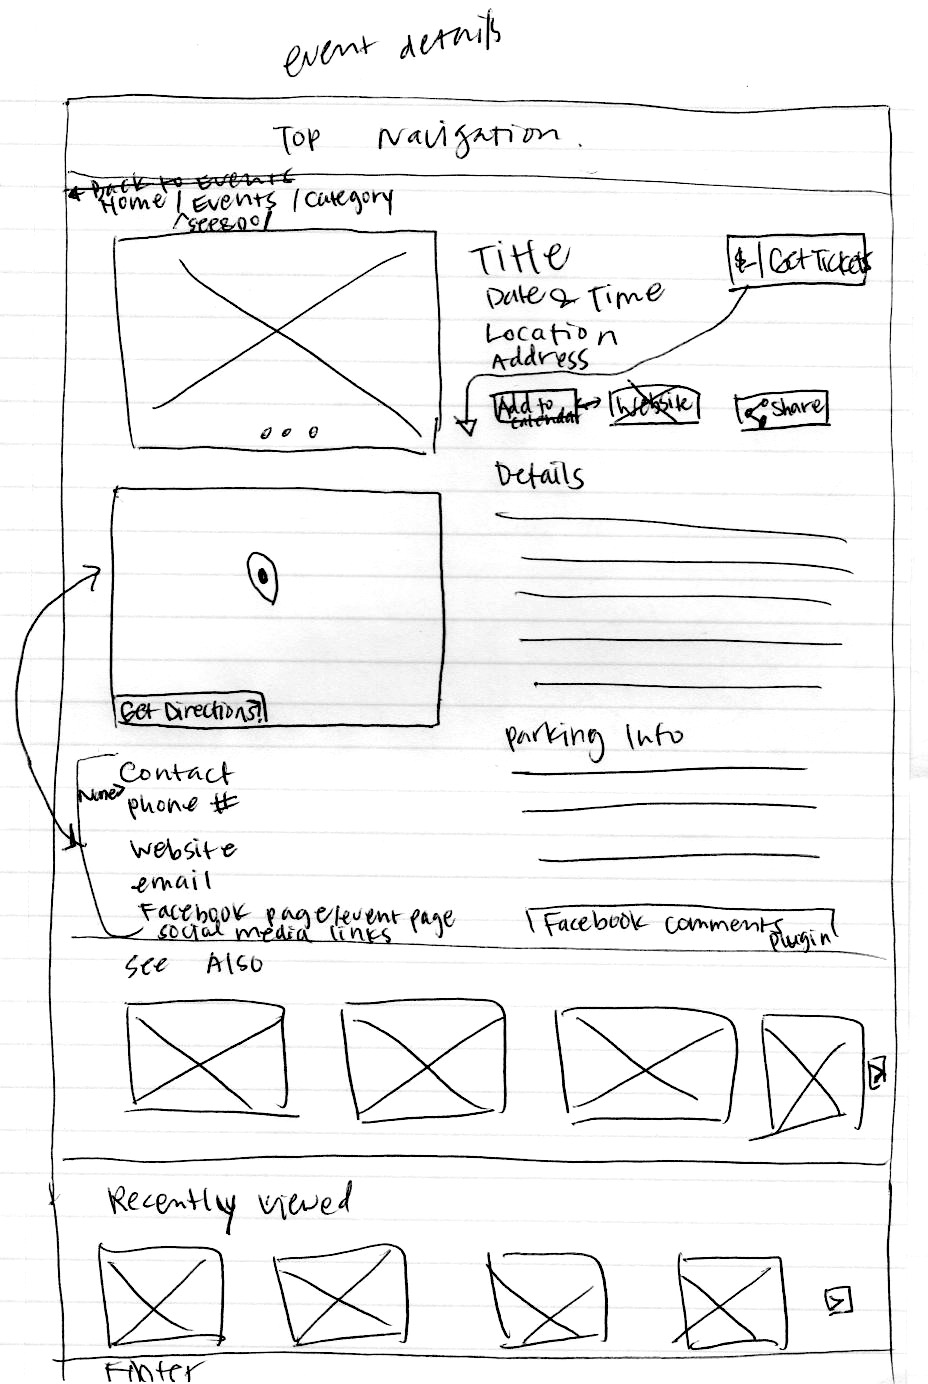 event details
Top Navigation.
Back to Events
Home / Events / Category
Title
$-| Get Tickets
Date & Time
Location
Address
Add to calendar
Website
Share
Details
Get Directions!
Parking Info
Contact
Name
phone #
website
email
Facebook page/event page
social media links
Facebook comments
plugin
see Also
Recently viewed
Footer